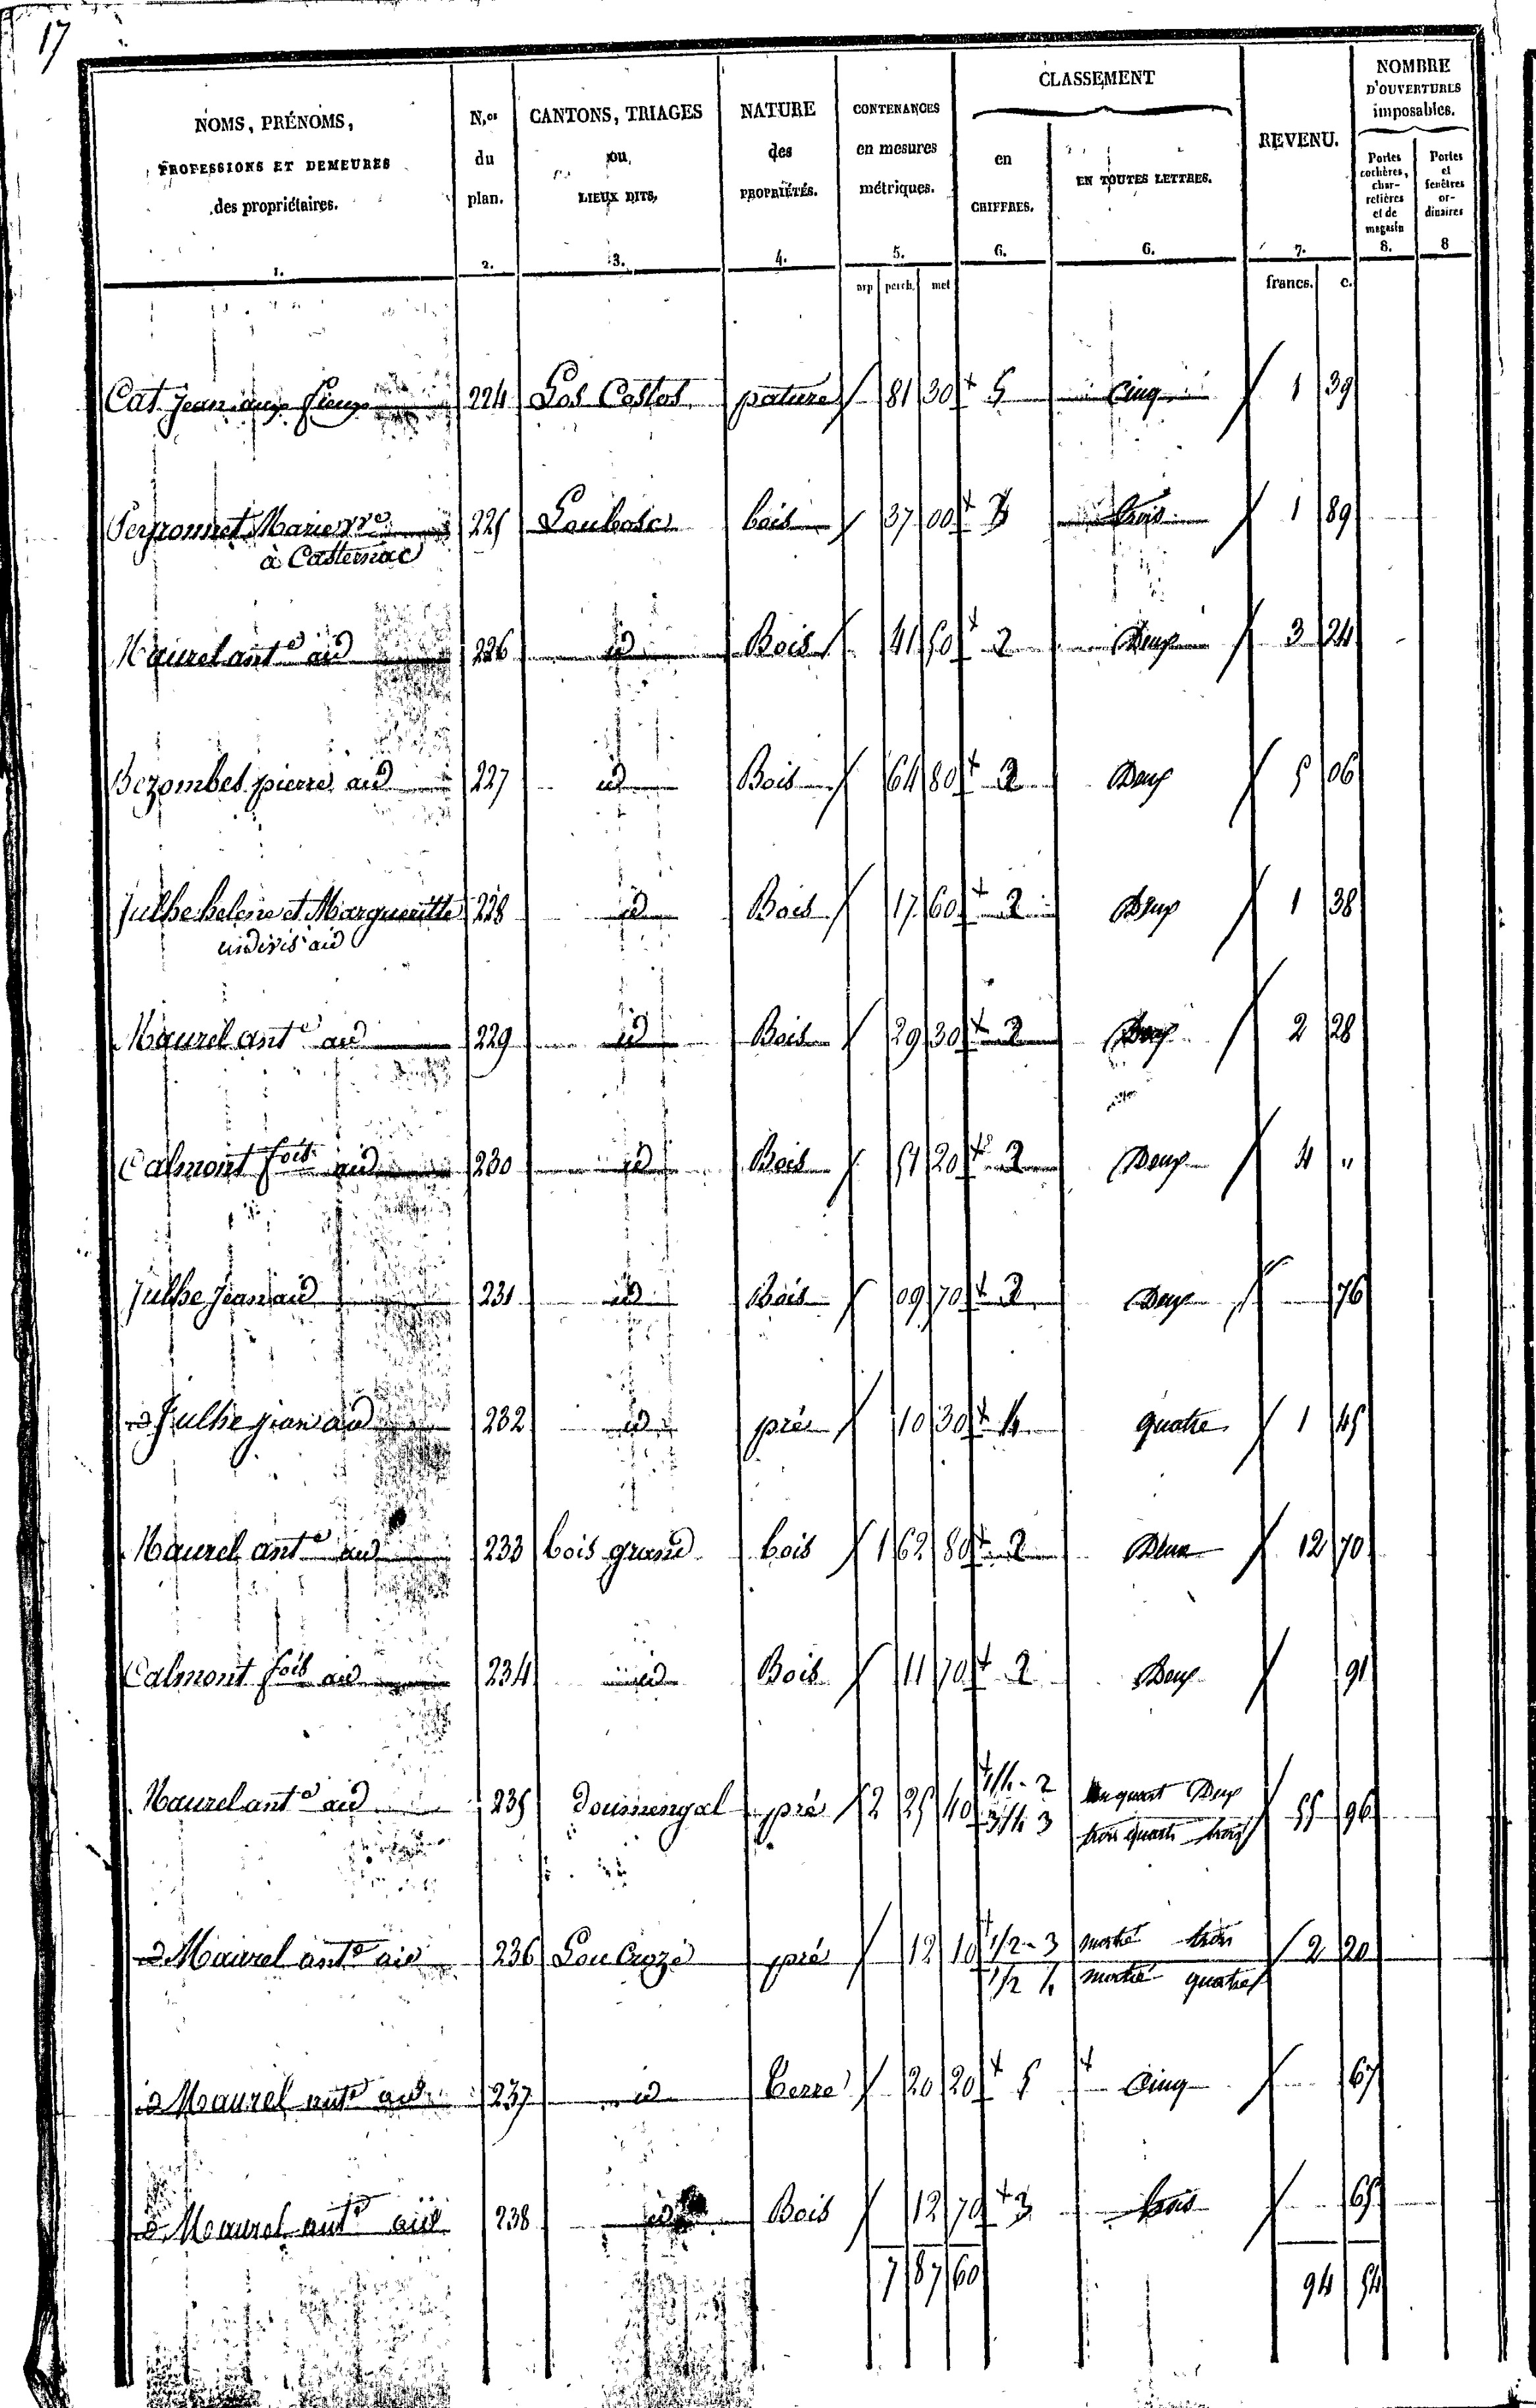 17
NOMS, PRÉNOMS, PROFESSIONS ET DEMEURES des propriétaires. 1.
N.os du plan. 2.
CANTONS, TRIAGES ou LIEUX DITS. 3.
NATURE des PROPRIÉTÉS. 4.
CONTENANCES en mesures métriques. 5.
CLASSEMENT
en CHIFFRES. 6.
EN TOUTES LETTRES. 6.
REVENU. 7.
NOMBRE D'OUVERTURES imposables.
Portes cochères, charretières et de magasin 8.
Portes et fenêtres ordinaires 8
arp perch. met francs. c.
Cat Jean aux 224 Las Costos pature 81 30 5 Cinq 1 39
Peyronnet Marie 225 Loubosc bois 37 00 3 trois 1 89
à Casternac
Maurel ant.e aid 226 id Bois 41 50 2 Deux 3 24
Bezombes pierre aid 227 id Bois 64 80 2 Deux 5 06
Julhe helene et Margueritte 228 id Bois 17 60 2 Deux 1 38
indivis aid
Maurel ant.e aid 229 id Bois 29 30 2 Deux 2 28
Calmont fois aid 230 id Bois 51 20 2 Deux 4 "
Julhe Jean aid 231 id Bois 09 70 2 Deux 76
Julhe jean aid 232 id pré 10 30 4 quatre 1 45
Maurel ant.e aid 233 bois grand bois 1 62 80 2 Deux 12 70
Calmont fois aid 234 id Bois 11 70 2 Deux 91
Maurel ant.e aid 235 Doumengal pré 2 25 40 1/4 - 2 un quart Deux 55 96
3/4 3 trois quarts trois
Maurel ant.e aid 236 Lou Crozé pré 12 10 1/2 - 3 moitié trois 2 20
1/2 4 moitié quatre
Maurel ant.e aid 237 id terre 20 20 5 Cinq 67
Maurel ant.e aid 238 id Bois 12 70 3 trois 65
7 87 60 94 54